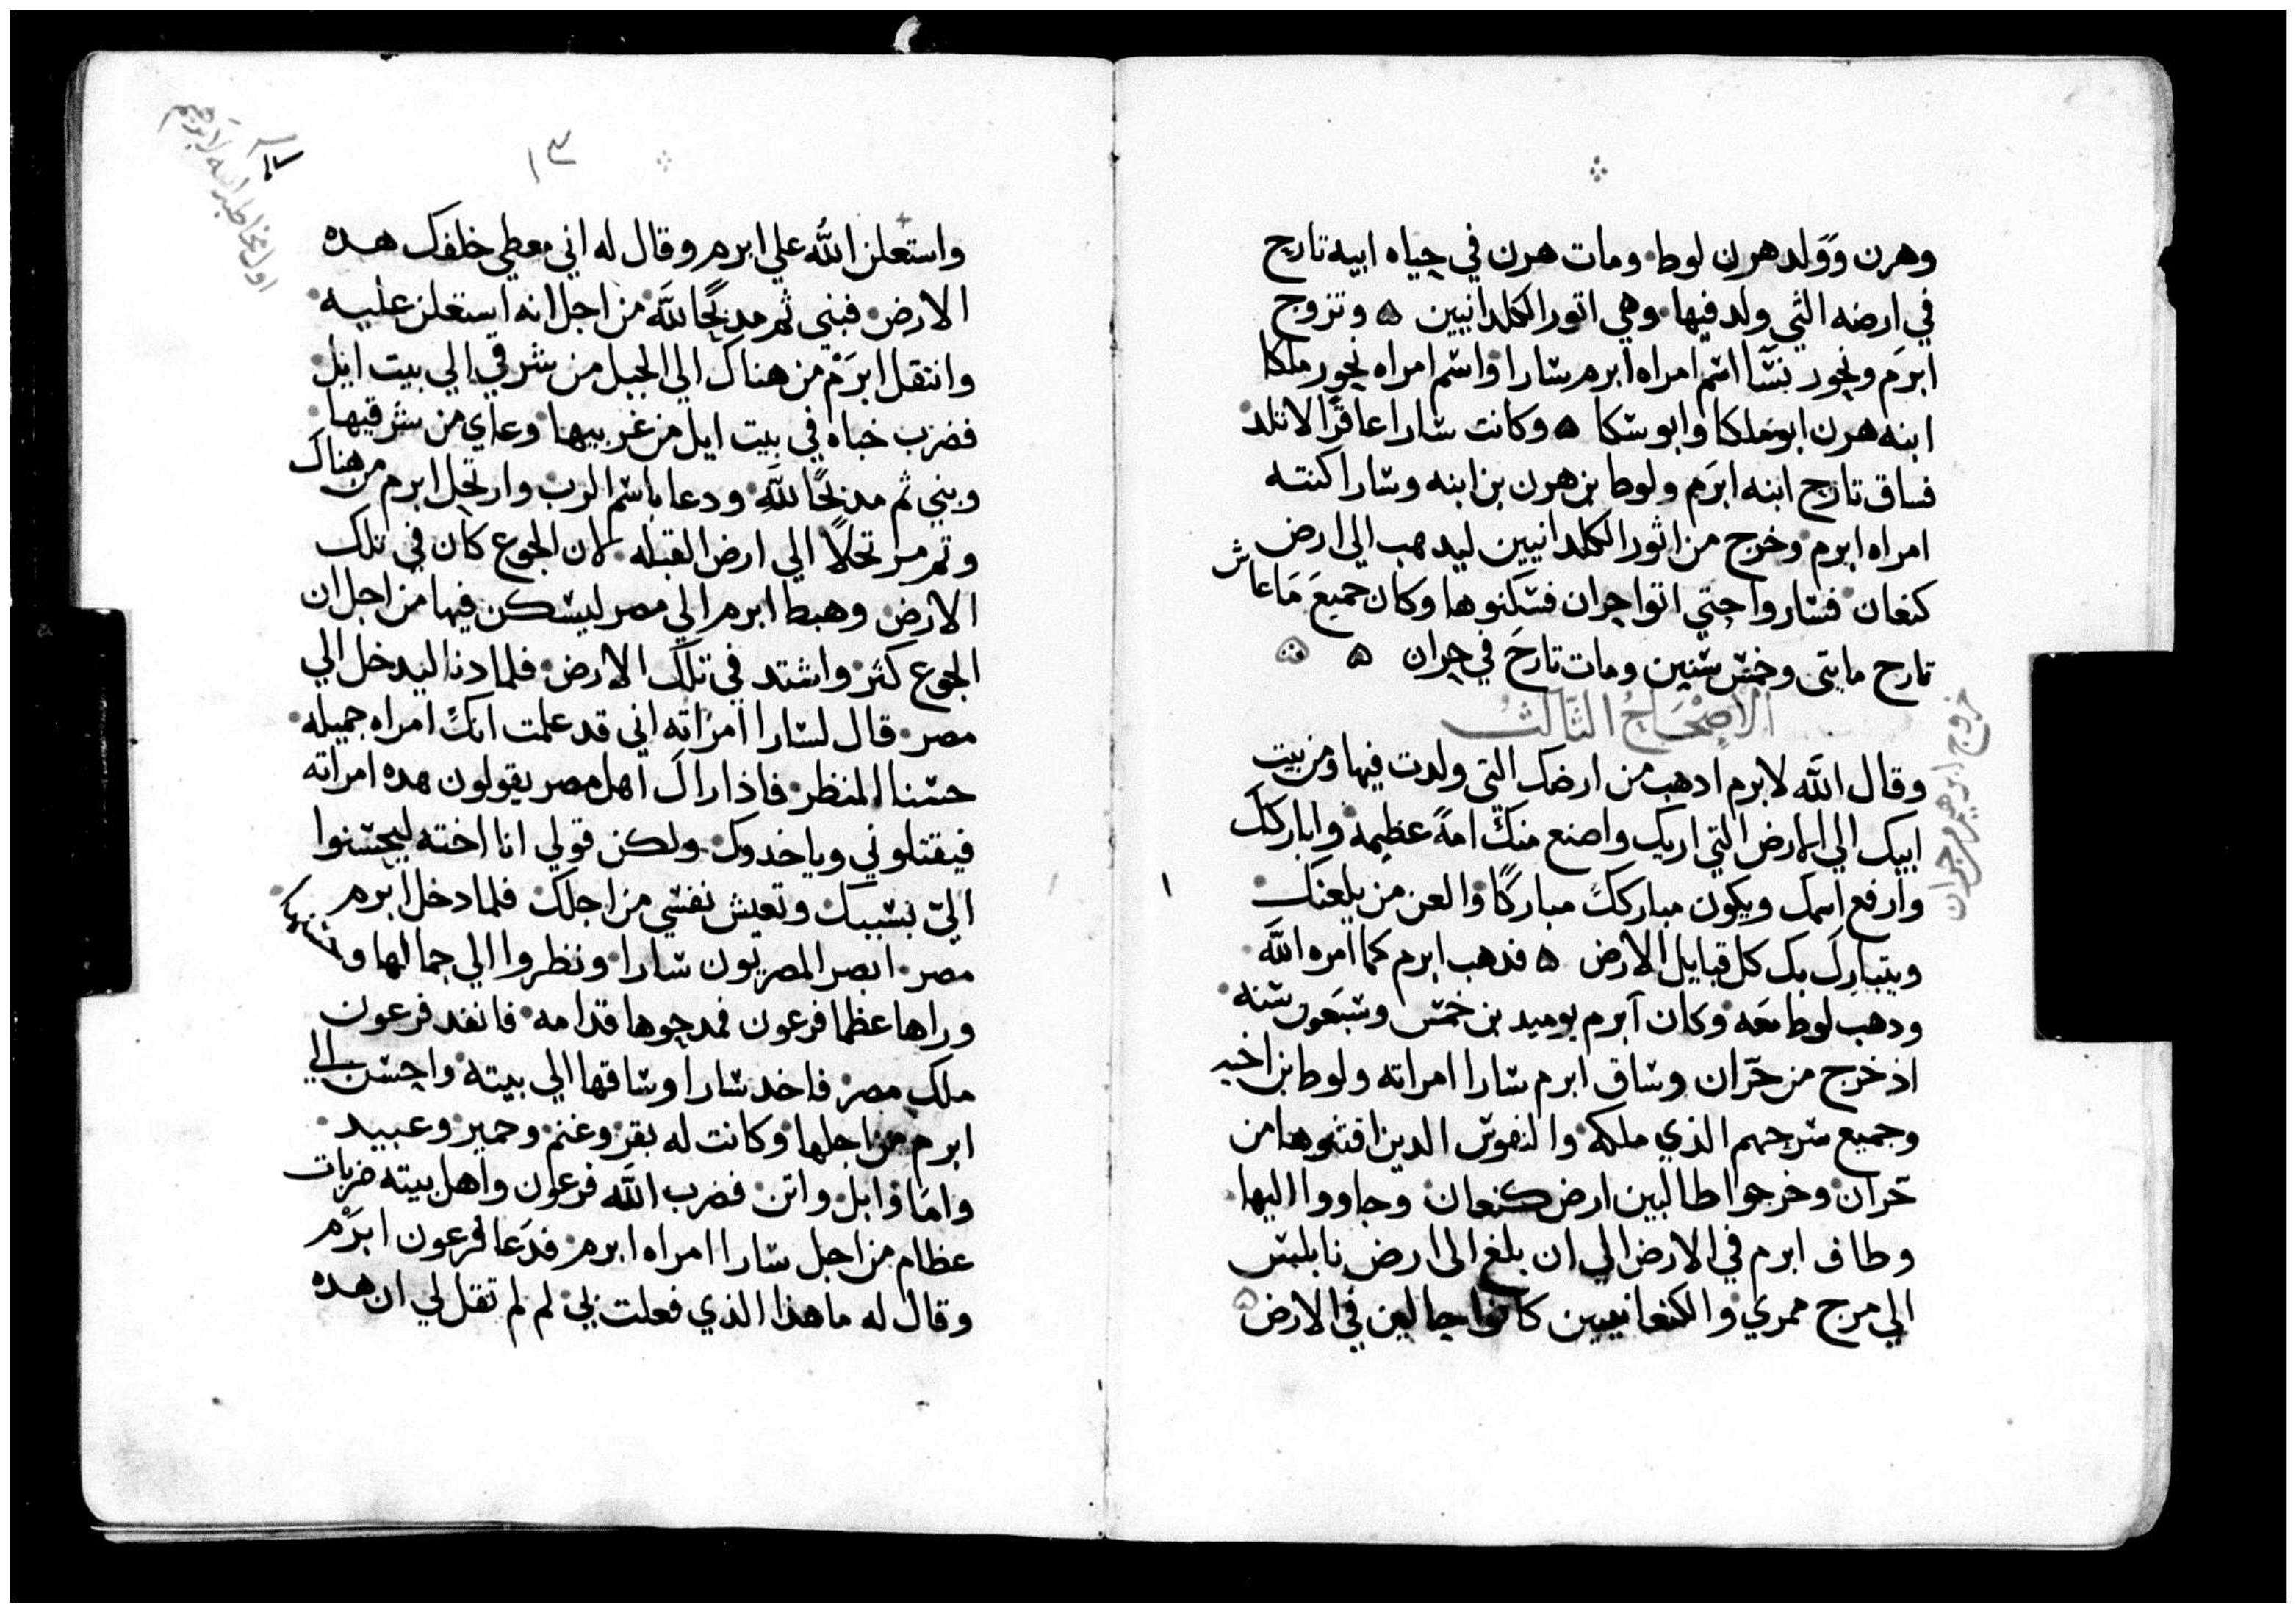 وهرن وَوَلد هرن لوط ومات هرن في حياه ابيه تارح
في ارضه التي ولد فيها وهي اتور الكلدانيين ٥ وتزوج
ابرَم ونحور نسَآ اسم امراه ابرم سارا واسم امراه نحور ملكا
ابنه هرن ابو ملكا وابو سكا ٥ وكانت سارا عاقرًا لا تلد
فساق تارح ابنه ابرَم ولوط بن هرن بن ابنه وسارا كنته
امراه ابرم وخرج من اثور الكلدانيين ليدهب الي ارض
كنعان فساروا حتي اتوا حران فسكنوها وكان جميعَ مَا عاش
تارح مايتي وخمس سنين ومات تارحَ في حران ٥
الاِصْحَاحُ الثَالثُ
خروج ابرهيم من حران
وقال اللَّه لابرم ادهب من ارضك التي ولدت فيها ومن بيت
ابيك الي الارض التي اريك واصنع منكَ امةً عظيمه واباركك
وارفع اسمك ويكون مباركك مباركًا والعن من يلعنك
ويتبارك بك كل قبايل الارض ٥ فدهب ابرم كما امره اللَّه
ودهب لوط معَه وكان ابرم يوميد بن خمس وسبَعون سنه
اذ خرج من حّران وساق ابرم سارا امراته ولوط بن اخيه
وجميع سرحهم الذي ملكه والنفوس الدين اقتنوها من
حّران وخرجوا طالبين ارض كنعان وجاووا اليها
وطاف ابرم في الارض الي ان بلغ الى ارض نابلس
الي مرج ممري والكنعانيين كانوا حالين في الارض ٥
١٣
اول مخاطبة الله لابرهيم
واستعلن اللَّه علي ابرم وقال له اني معطي خلفك هده
الارض فبني ثم مدبحًا للَّه من اجل انه استعلن عليه
وانتقل ابرَم من هناك الي الجبل من شرقي الي بيت ايل
فضرب خباه في بيت ايل من غربيها وعاي من شرقيها
وبني ثم مدبحًا للَّه ودعا باسم الرب وارتحل ابرم من هناك
وثم مرتحلاً الي ارض القبله لان الجوع كان في تلك
الارض وهبط ابرم الي مصر ليسكن فيها من اجل ان
الجوع كثر واشتد في تلك الارض فلما دنا ليدخل الي
مصر قال لسارا امراته اني قد علمت انكً امراه جميله
حسنا المنظر فاذا راك اهل مصر يقولون هده امراته
فيقتلوني وياخدوك ولكن قولي انا اخته ليحسنوا
اليّ بسببك وتعيش نفسي من اجلك فلما دخل ابرم
مصر ابصر المصريون سارا ونظروا الي جمالها
وراها عظما فرعون فمدحوها قدامه فانفد فرعون
ملك مصر فاخد سارا وساقها الي بيته واحسن الي
ابرم من اجلها وكانت له بقر وغنم وحمير وعبيد
وامَا وابل واتن فضرب اللَّه فرعون واهل بيته ضربات
عظام من اجل سارا امراه ابرم فدَعا فرعون ابرَم
وقال له ما هذا الذي فعلت بي لم لم تقل لي ان هده